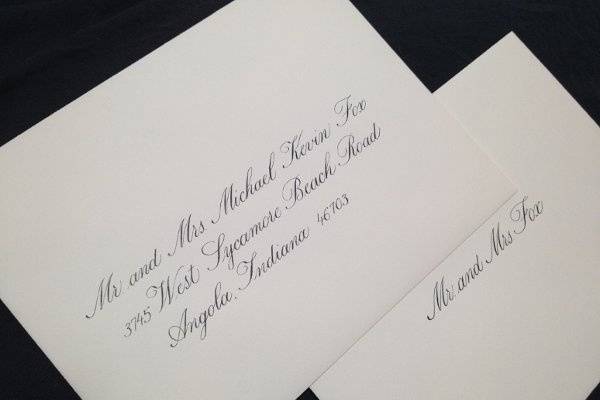 Mr and Mrs Michael Kevin Fox
3745 West Sycamore Beach Road
Angola, Indiana 46703
Mr and Mrs Fox